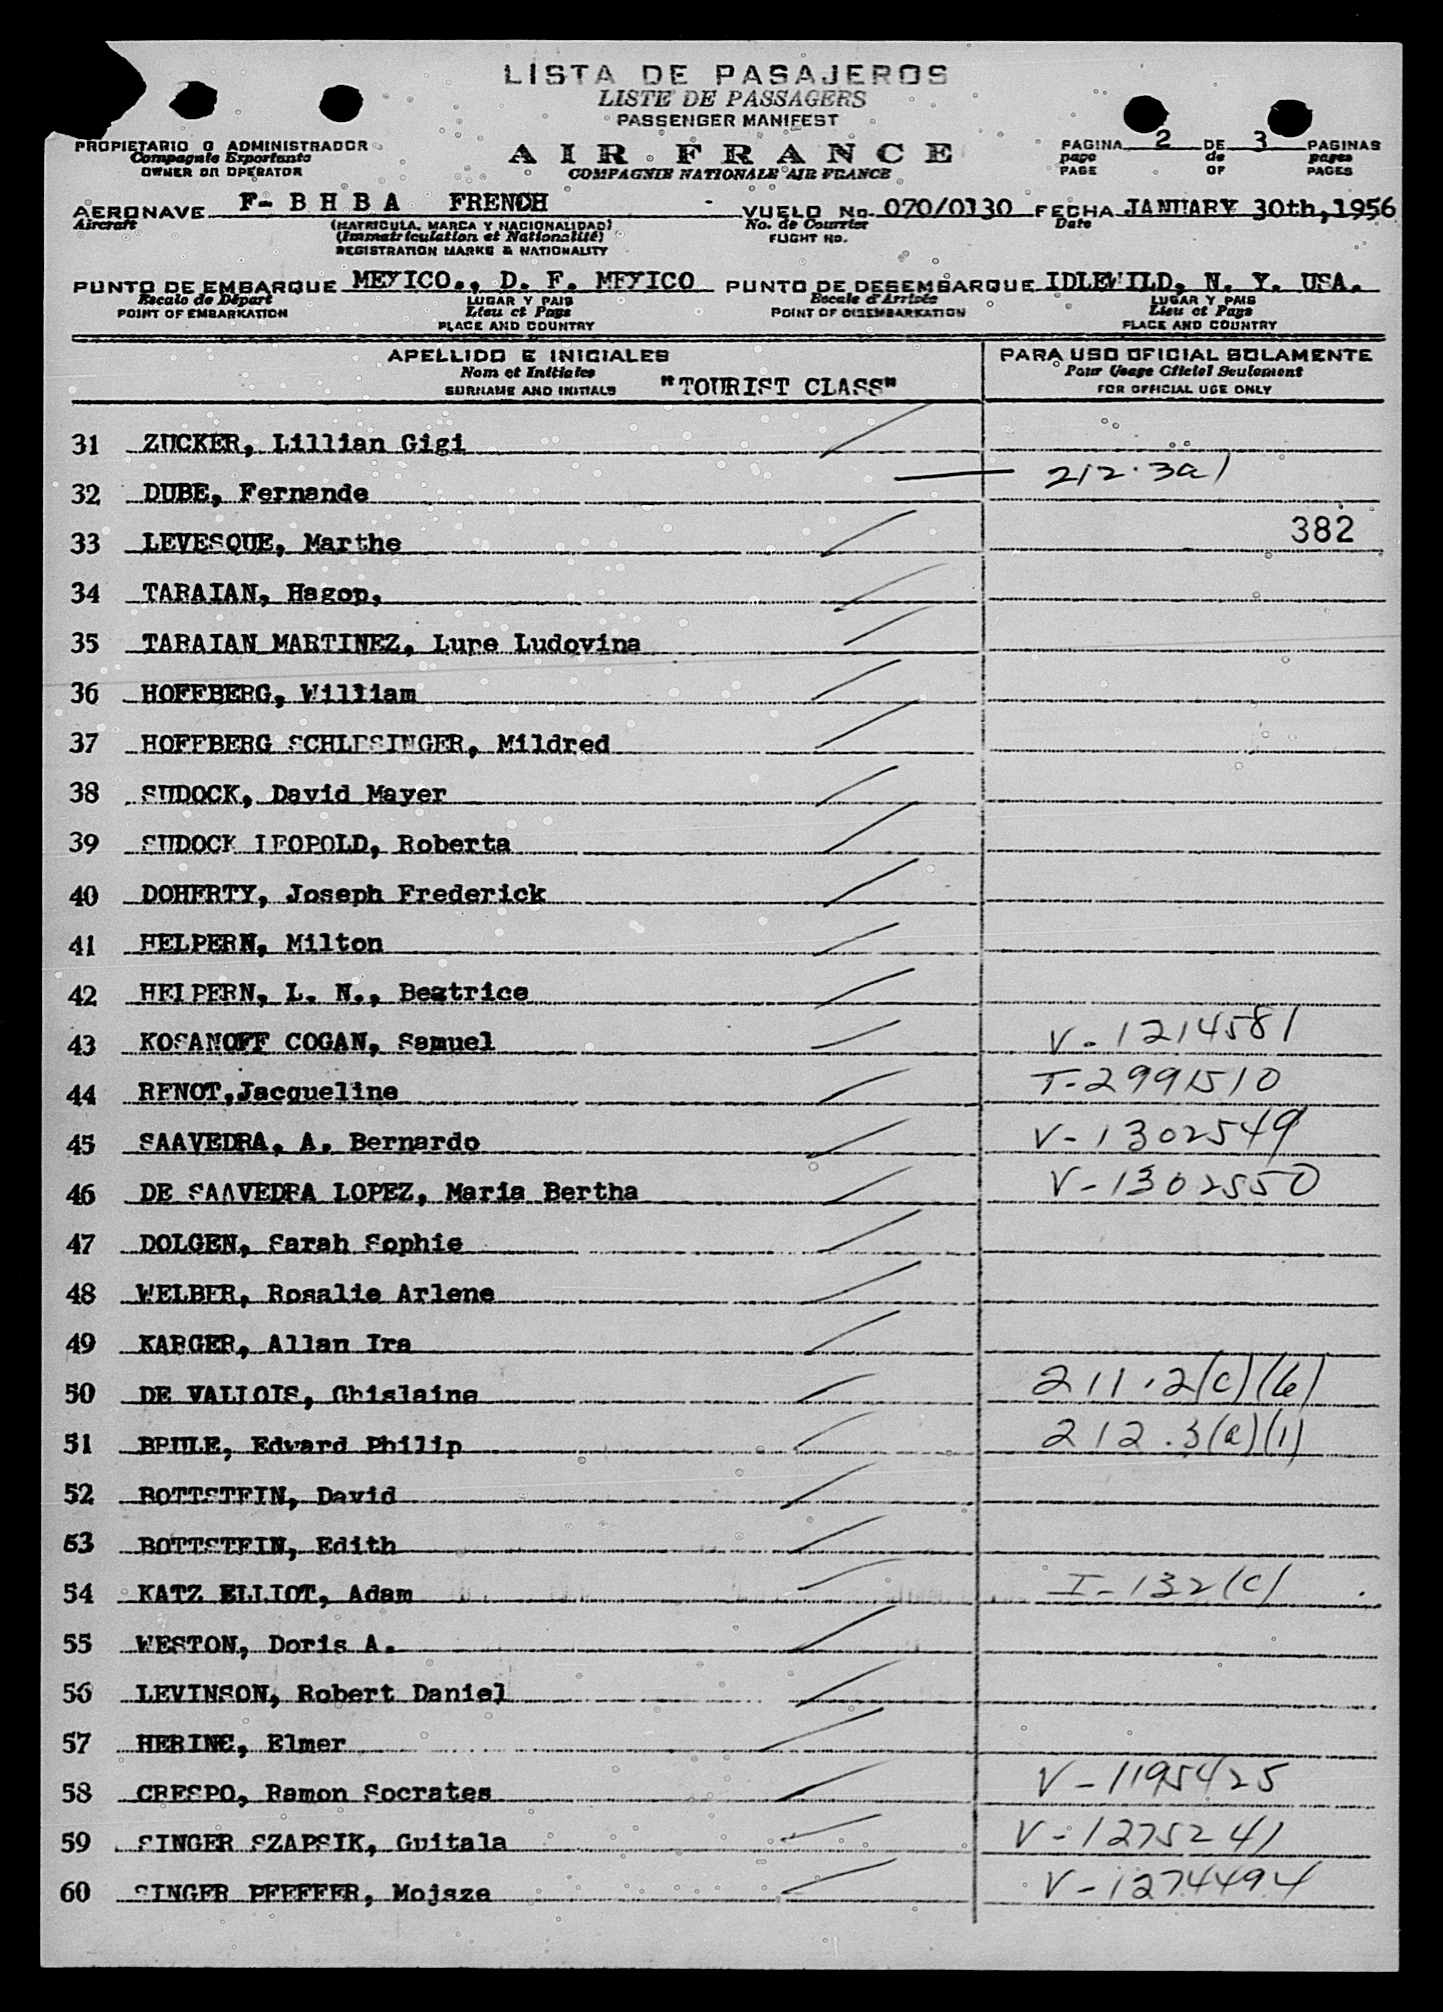 LISTA DE PASAJEROS
LISTE DE PASSAGERS
PASSENGER MANIFEST
PROPIETARIO O ADMINISTRADOR
Compagnie Exportante
OWNER OR OPERATOR
AIR FRANCE
COMPAGNIE NATIONALE AIR FRANCE
PAGINA 2 DE 3 PAGINAS
page de pages
PAGE OF PAGES
AERONAVE F- B H B A FRENCH VUELO No. 070/0130 FECHA JANUARY 30th, 1956
Aircraft (MATRICULA, MARCA Y NACIONALIDAD) No. de Courrier Date
(Immatriculation et Nationalité) FLIGHT NO.
REGISTRATION MARKS & NATIONALITY
PUNTO DE EMBARQUE MEXICO., D. F. MEXICO PUNTO DE DESEMBARQUE IDLEWILD, N. Y. USA.
Escale de Départ LUGAR Y PAIS Escale d'Arrivée LUGAR Y PAIS
POINT OF EMBARKATION Lieu et Pays POINT OF DISEMBARKATION Lieu et Pays
PLACE AND COUNTRY PLACE AND COUNTRY
APELLIDO E INICIALES PARA USO OFICIAL SOLAMENTE
Nom et Initiales Pour Usage Officiel Seulement
SURNAME AND INITIALS "TOURIST CLASS" FOR OFFICIAL USE ONLY
31 ZUCKER, Lillian Gigi
32 DUBE, Fernande 212.3a1
33 LEVESQUE, Marthe 382
34 TARAIAN, Hagop,
35 TARAIAN MARTINEZ, Lupe Ludovina
36 HOFFBERG, William
37 HOFFBERG SCHLESINGER, Mildred
38 SUDOCK, David Mayer
39 SUDOCK LEOPOLD, Roberta
40 DOHERTY, Joseph Frederick
41 HELPERN, Milton
42 HELPERN, L. N., Beatrice
43 KOSANOFF COGAN, Samuel V-1214581
44 RENOT,Jacqueline T-2991510
45 SAAVEDRA, A. Bernardo V-1302549
46 DE SAAVEDRA LOPEZ, Maria Bertha V-1302550
47 DOLGEN, Sarah Sophie
48 WELBER, Rosalie Arlene
49 KARGER, Allan Ira
50 DE VALLOIS, Ghislaine 211.2(c)(6)
51 BRULE, Edward Philip 212.3(a)(1)
52 BOTTSTEIN, David
53 BOTTSTEIN, Edith
54 KATZ ELLIOT, Adam I-132(c)
55 WESTON, Doris A.
56 LEVINSON, Robert Daniel
57 HERING, Elmer
58 CRESPO, Ramon Socrates V-1195425
59 SINGER SZAPSIK, Guitala V-1275241
60 SINGER PFEFFER, Mojsze V-1274494